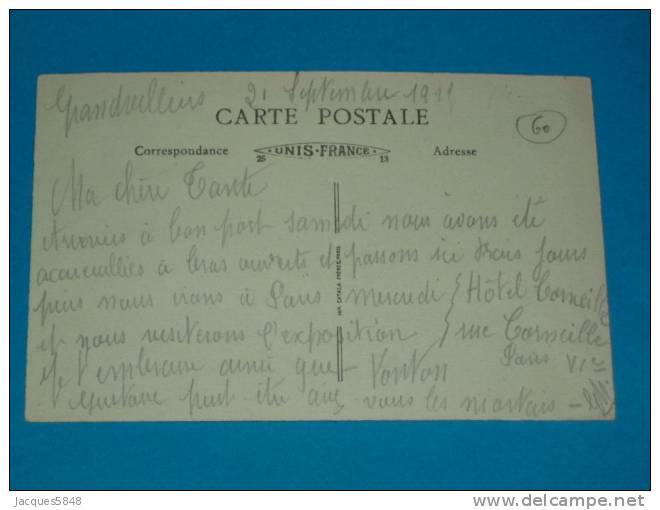 Grandvilliers 21 Septembre 19
CARTE POSTALE
60
Correspondance
25 UNIS-FRANCE 13
Adresse
Ma chère Tante
Arrivés à bon port samedi nous avons été
accueuillies à bras ouverts et passons ici trois jours
puis nous irons à Paris mercredi Hôtel Corneille
et nous visiterons l'exposition rue Corneille
Paris VIe
Je t'embrasse ainsi que Tonton
Gustave peut être avec vous les
IMP. CATALA FRÈRES, PARIS
Jacques5848
delcampe.net